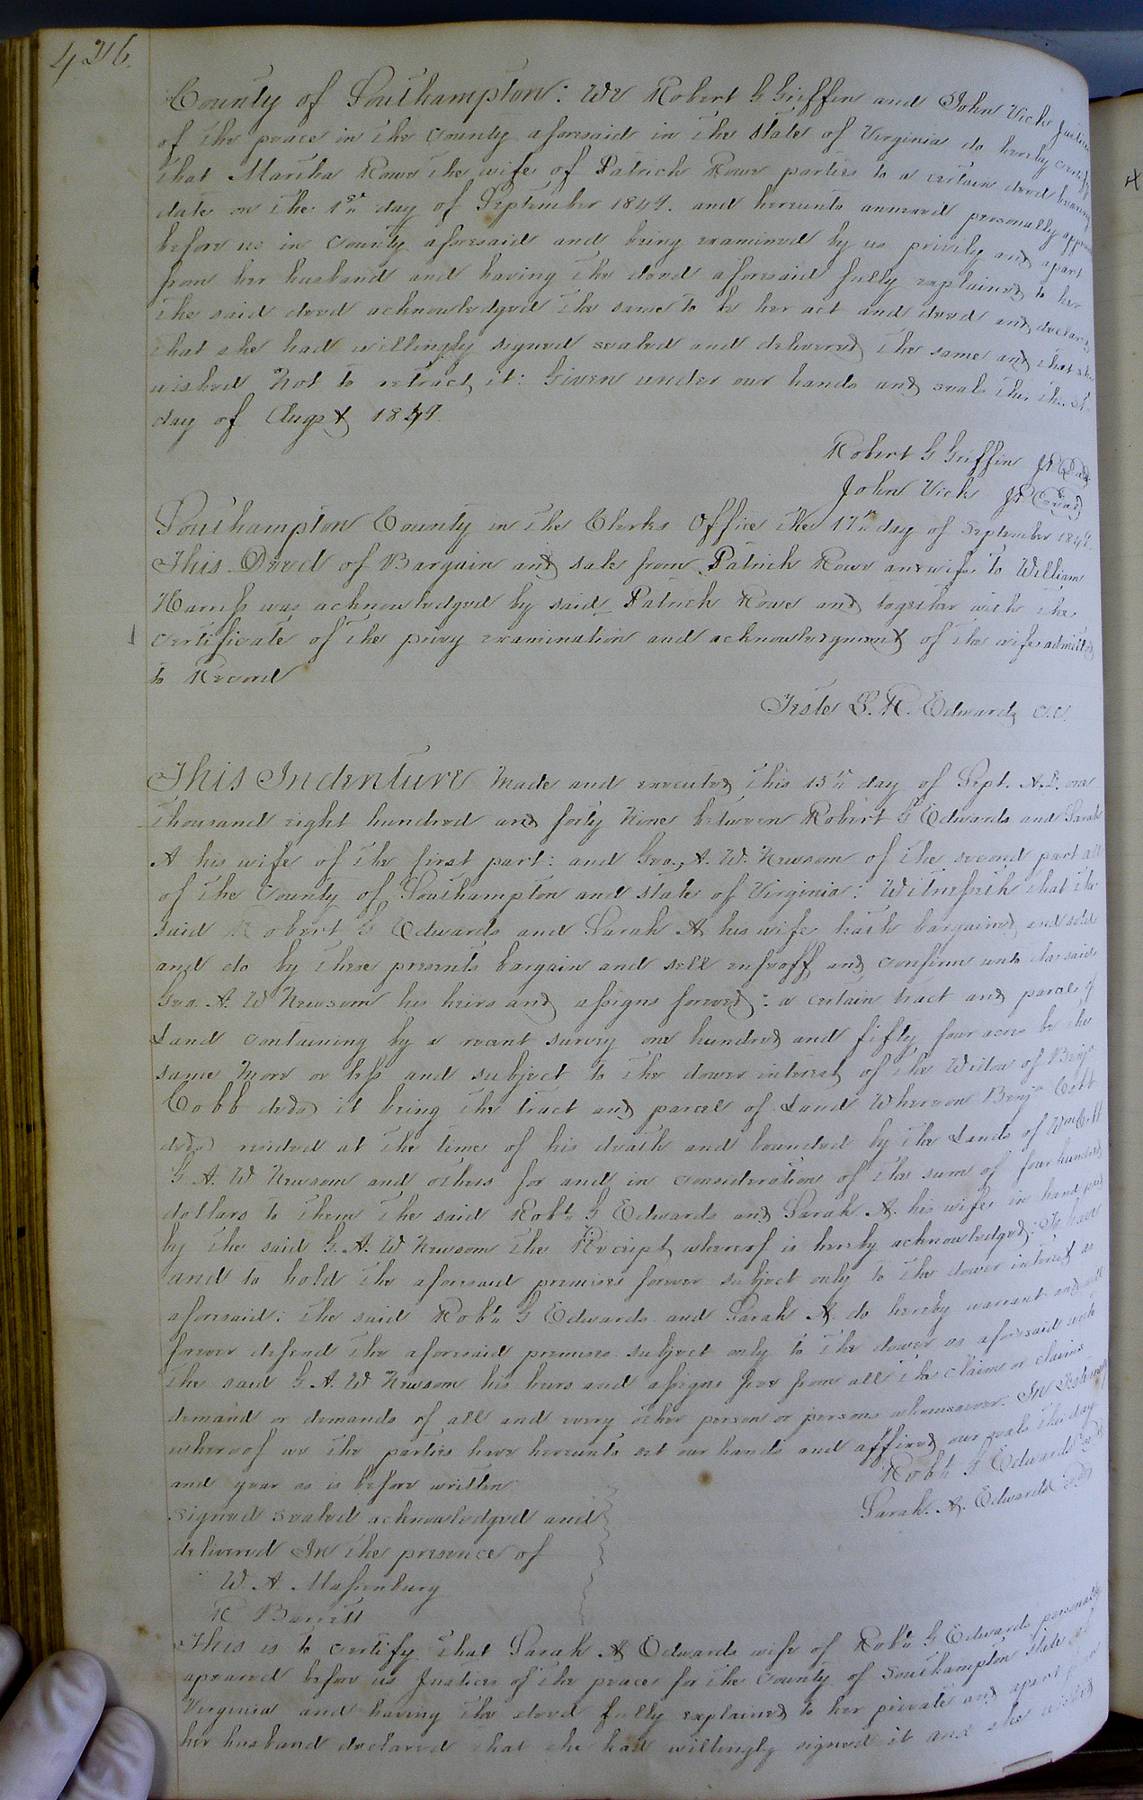 426.
County of Southampton: We Robert G Griffin and John Vick Justices
of the peace in the County aforesaid in the State of Virginia do hereby certify
that Martha Rowe the wife of Patrick Rowe parties to a certain deed bearing
date on the 1st day of September 1849. and hereunto annexed personally appeared
before us in County aforesaid and being examined by us privily and apart
from her husband and having the deed aforesaid fully explained to her
the said deed acknowledged the same to be her act and deed and declared
that she had willingly signed sealed and delivered the same and that she
wished Not to retract it: Given under our hands and seals this the
day of Augst 1849.
Robert G Griffin JP Seal
John Vick JP Seal
Southampton County in the Clerks Office the 17th day of September 1849.
This Deed of Bargain and sale from Patrick Rowe and wife To William
Harriss was acknowledged by said Patrick Rowe and together with the
certificate of the privy examination and acknowledgment of the wife admitted
to Record
Teste L. R. Edwards C.C.
This Indenture Made and executed this 15th day of Sept. A.D. one
thousand eight hundred and forty Nine between Robert G Edwards and Sarah
A his wife of the first part: and Geo. A. W. Newsom of the second part all
of the County of Southampton and state of Virginia: Witnesseth that the
said Robert G Edwards and Sarah A his wife hath bargained and sold
and do by these presents bargain and sell enfeoff and confirm unto the said
Geo. A. W Newsom his heirs and assigns forever: a certain tract and parcel of
Land containing by a recent survey one hundred and fifty four acres be the
same more or less and subject to the dower interest of the Widow of Benja
Cobb decd it being the tract and parcel of Land Whereon Benja Cobb
decd resided at the time of his death and bounded by the Lands of Wm Cobb
G A. W Newsom and others for and in consideration of the sum of four hundred
dollars to them the said Robt G Edwards and Sarah A. his wife in hand paid
by the said G. A. W Newsom the Receipt whereof is hereby acknowledged: To have
and to hold the aforesaid premises forever subject only to the dower interest as
aforesaid: the said Robt G Edwards and Sarah A. do hereby warrant and will
forever defend the aforesaid premises subject only to the dower as aforesaid unto
the said G. A. W Newsom his heirs and assigns free from all the claim or claims
demand or demands of all and every other person or persons whomsoever. In Testimony
whereof we the parties have hereunto set our hands and affixed our seals the day
and year as is before written
Robt G Edwards Seal
Sarah. A. Edwards Seal
signed sealed acknowledged and
delivered In the presence of
W. A. Massenburg
R Barrett
This is to certify that Sarah A Edwards wife of Robt G Edwards personally
apeared before us Justices of the peace for the County of Southampton State of
Virginia and having the deed fully explained to her private and apart from
her husband declared that she had willingly signed it and she wished